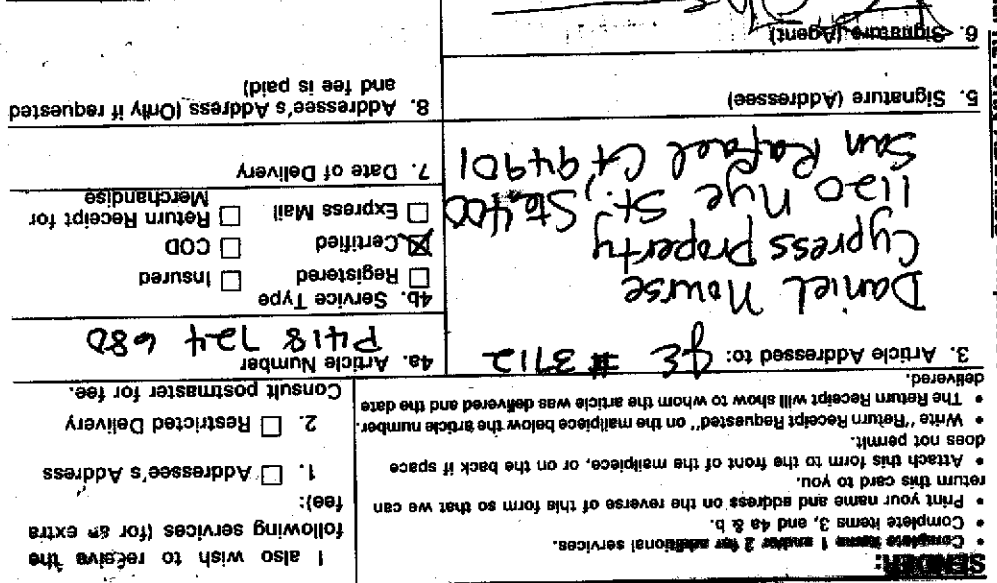 SENDER:
• Complete items 1 and/or 2 for additional services.
• Complete items 3, and 4a & b.
• Print your name and address on the reverse of this form so that we can
return this card to you.
• Attach this form to the front of the mailpiece, or on the back if space
does not permit.
• Write "Return Receipt Requested" on the mailpiece below the article number.
• The Return Receipt will show to whom the article was delivered and the date
delivered.
I also wish to receive the
following services (for an extra
fee):
1. ☐ Addressee's Address
2. ☐ Restricted Delivery
Consult postmaster for fee.
3. Article Addressed to: # 3712
Daniel Nourse
Cypress Property
1120 Nye St., Ste 400
San Rafael CA 94901
4a. Article Number
P418 724 680
4b. Service Type
☐ Registered ☐ Insured
☒ Certified ☐ COD
☐ Express Mail ☐ Return Receipt for
Merchandise
7. Date of Delivery
5. Signature (Addressee)
8. Addressee's Address (Only if requested
and fee is paid)
6. Signature (Agent)